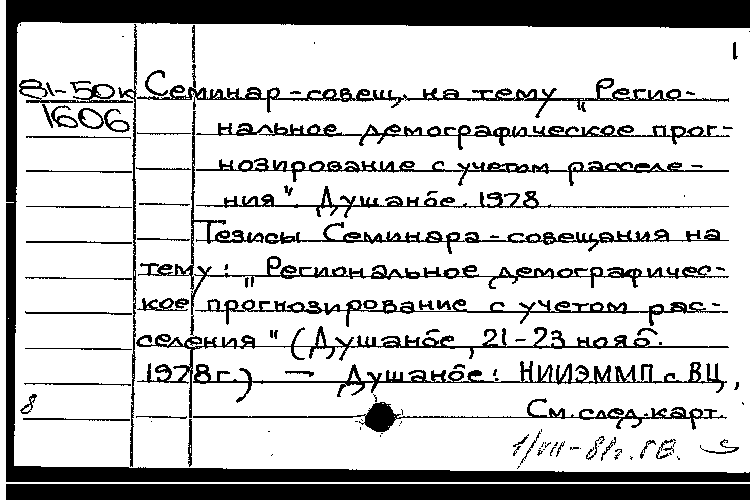 1
81-50к Семинар-совещ. на тему „Регио-
1606 нальное демографическое прог-
нозирование с учетом расселе-
ния". Душанбе. 1978.
Тезисы Семинара-совещания на
тему: „Региональное демографичес-
кое прогнозирование с учетом рас-
селения" (Душанбе, 21-23 нояб.
1978г.) — Душанбе: НИИЭММП с ВЦ,
8 См. след. карт.
1/VII-81г. ГВ.